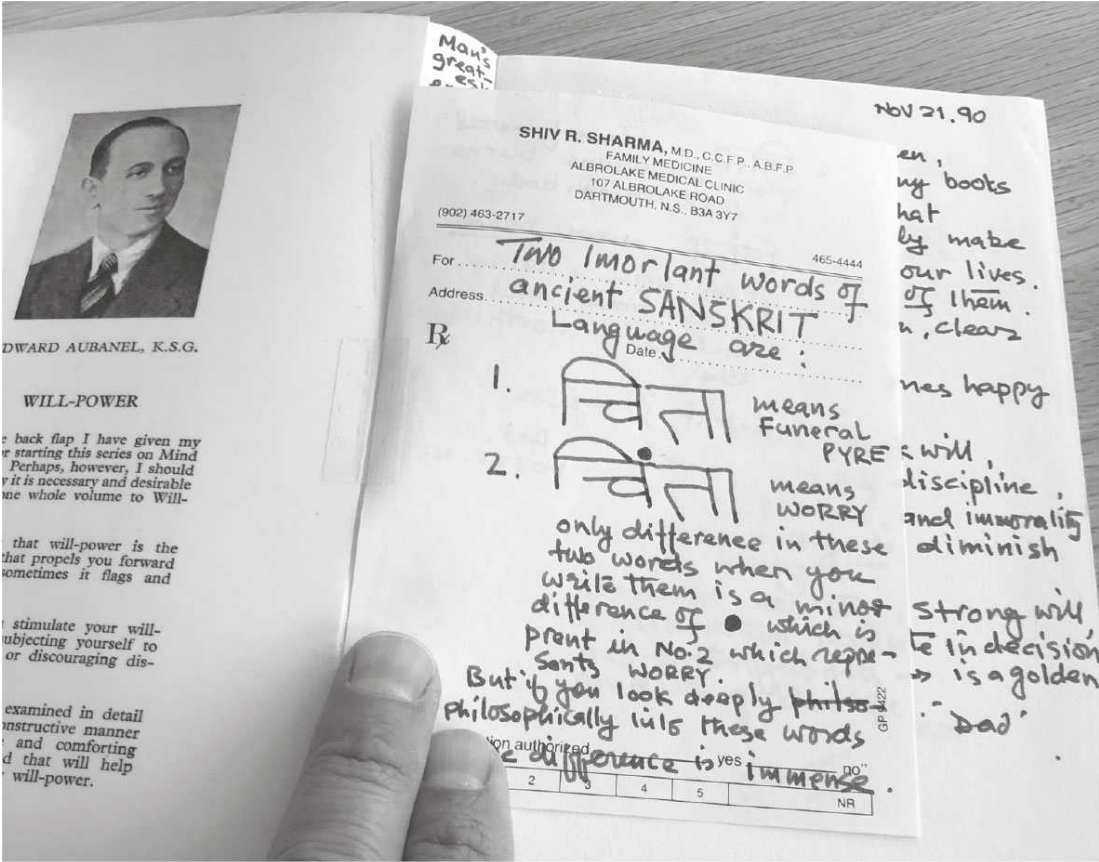 DWARD AUBANEL, K.S.G.
WILL-POWER
e back flap I have given my
or starting this series on Mind
Perhaps, however, I should
y it is necessary and desirable
one whole volume to Will-
that will-power is the
that propels you forward
sometimes it flags and
stimulate your will-
ubjecting yourself to
or discouraging dis-
examined in detail
onstructive manner
and comforting
d that will help
will-power.
Man's
great
est
SHIV R. SHARMA, M.D., C.C.F.P., A.B.F.P.
FAMILY MEDICINE
ALBROLAKE MEDICAL CLINIC
107 ALBROLAKE ROAD
DARTMOUTH, N.S., B3A 3Y7
(902) 463-2717
465-4444
For Two Imortant words of
Address ancient SANSKRIT
Rx Language are :
Date
1. चिता means
Funeral
PYRE
2. चिंता means
WORRY
only difference in these
two words when you
write them is a minor
difference of ● which is
prent in No.2 which repre-
sents WORRY.
But if you look deeply philso
philosophically into these words
e difference is immense.
ion authorized yes no
2 3 4 5 NR
GP 8422
NOV 21.90
en,
ny books
hat
ly make
our lives.
of them
n, clear
nes happy
will,
discipline,
and immorality
diminish
strong will
te in decision
is a golden
"Dad"